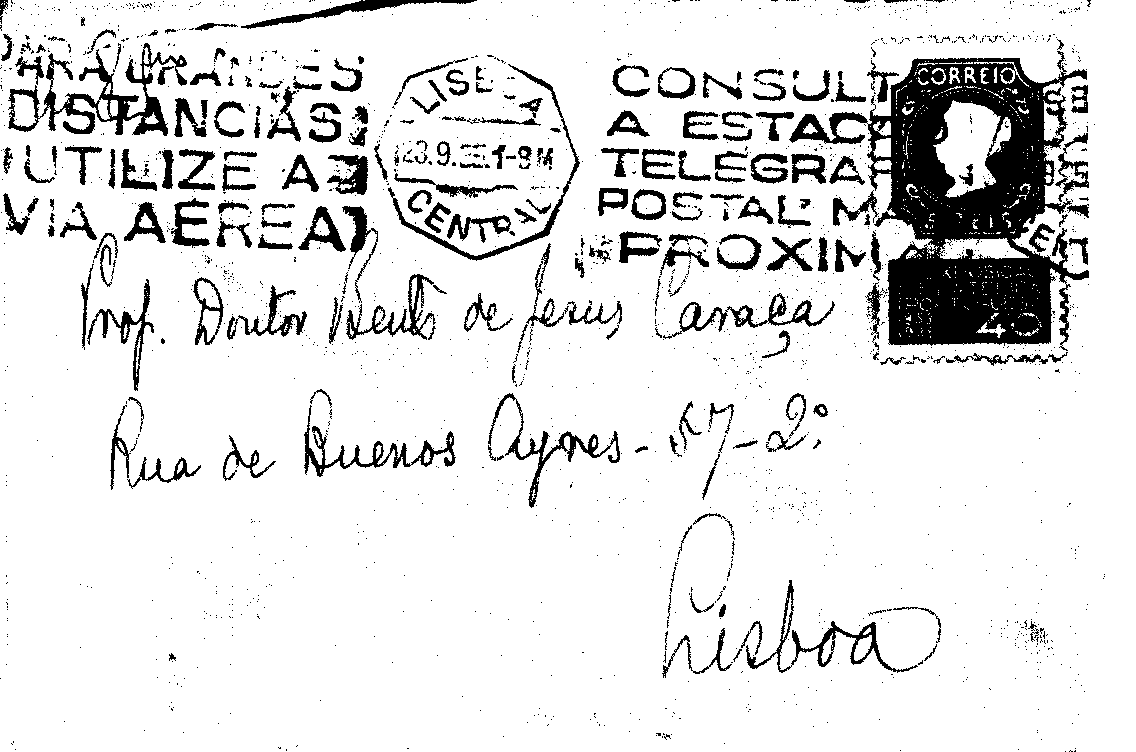 PARA GRANDES
DISTANCIAS
UTILIZE A
VIA AÉREA
LISBOA
23.9. 1-9M
CENTRAL
CONSULT
A ESTAC
TELEGRAF
POSTAL MA
PROXIM
CORREIO
5 REIS
40
Prof. Doutor Bento de Jesus Caraça
Rua de Buenos Ayres - 57-2º
Lisboa